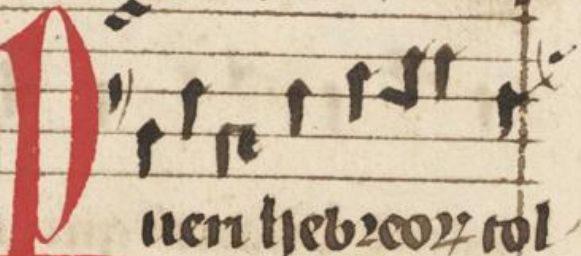 Pueri hebreoꝝ tol